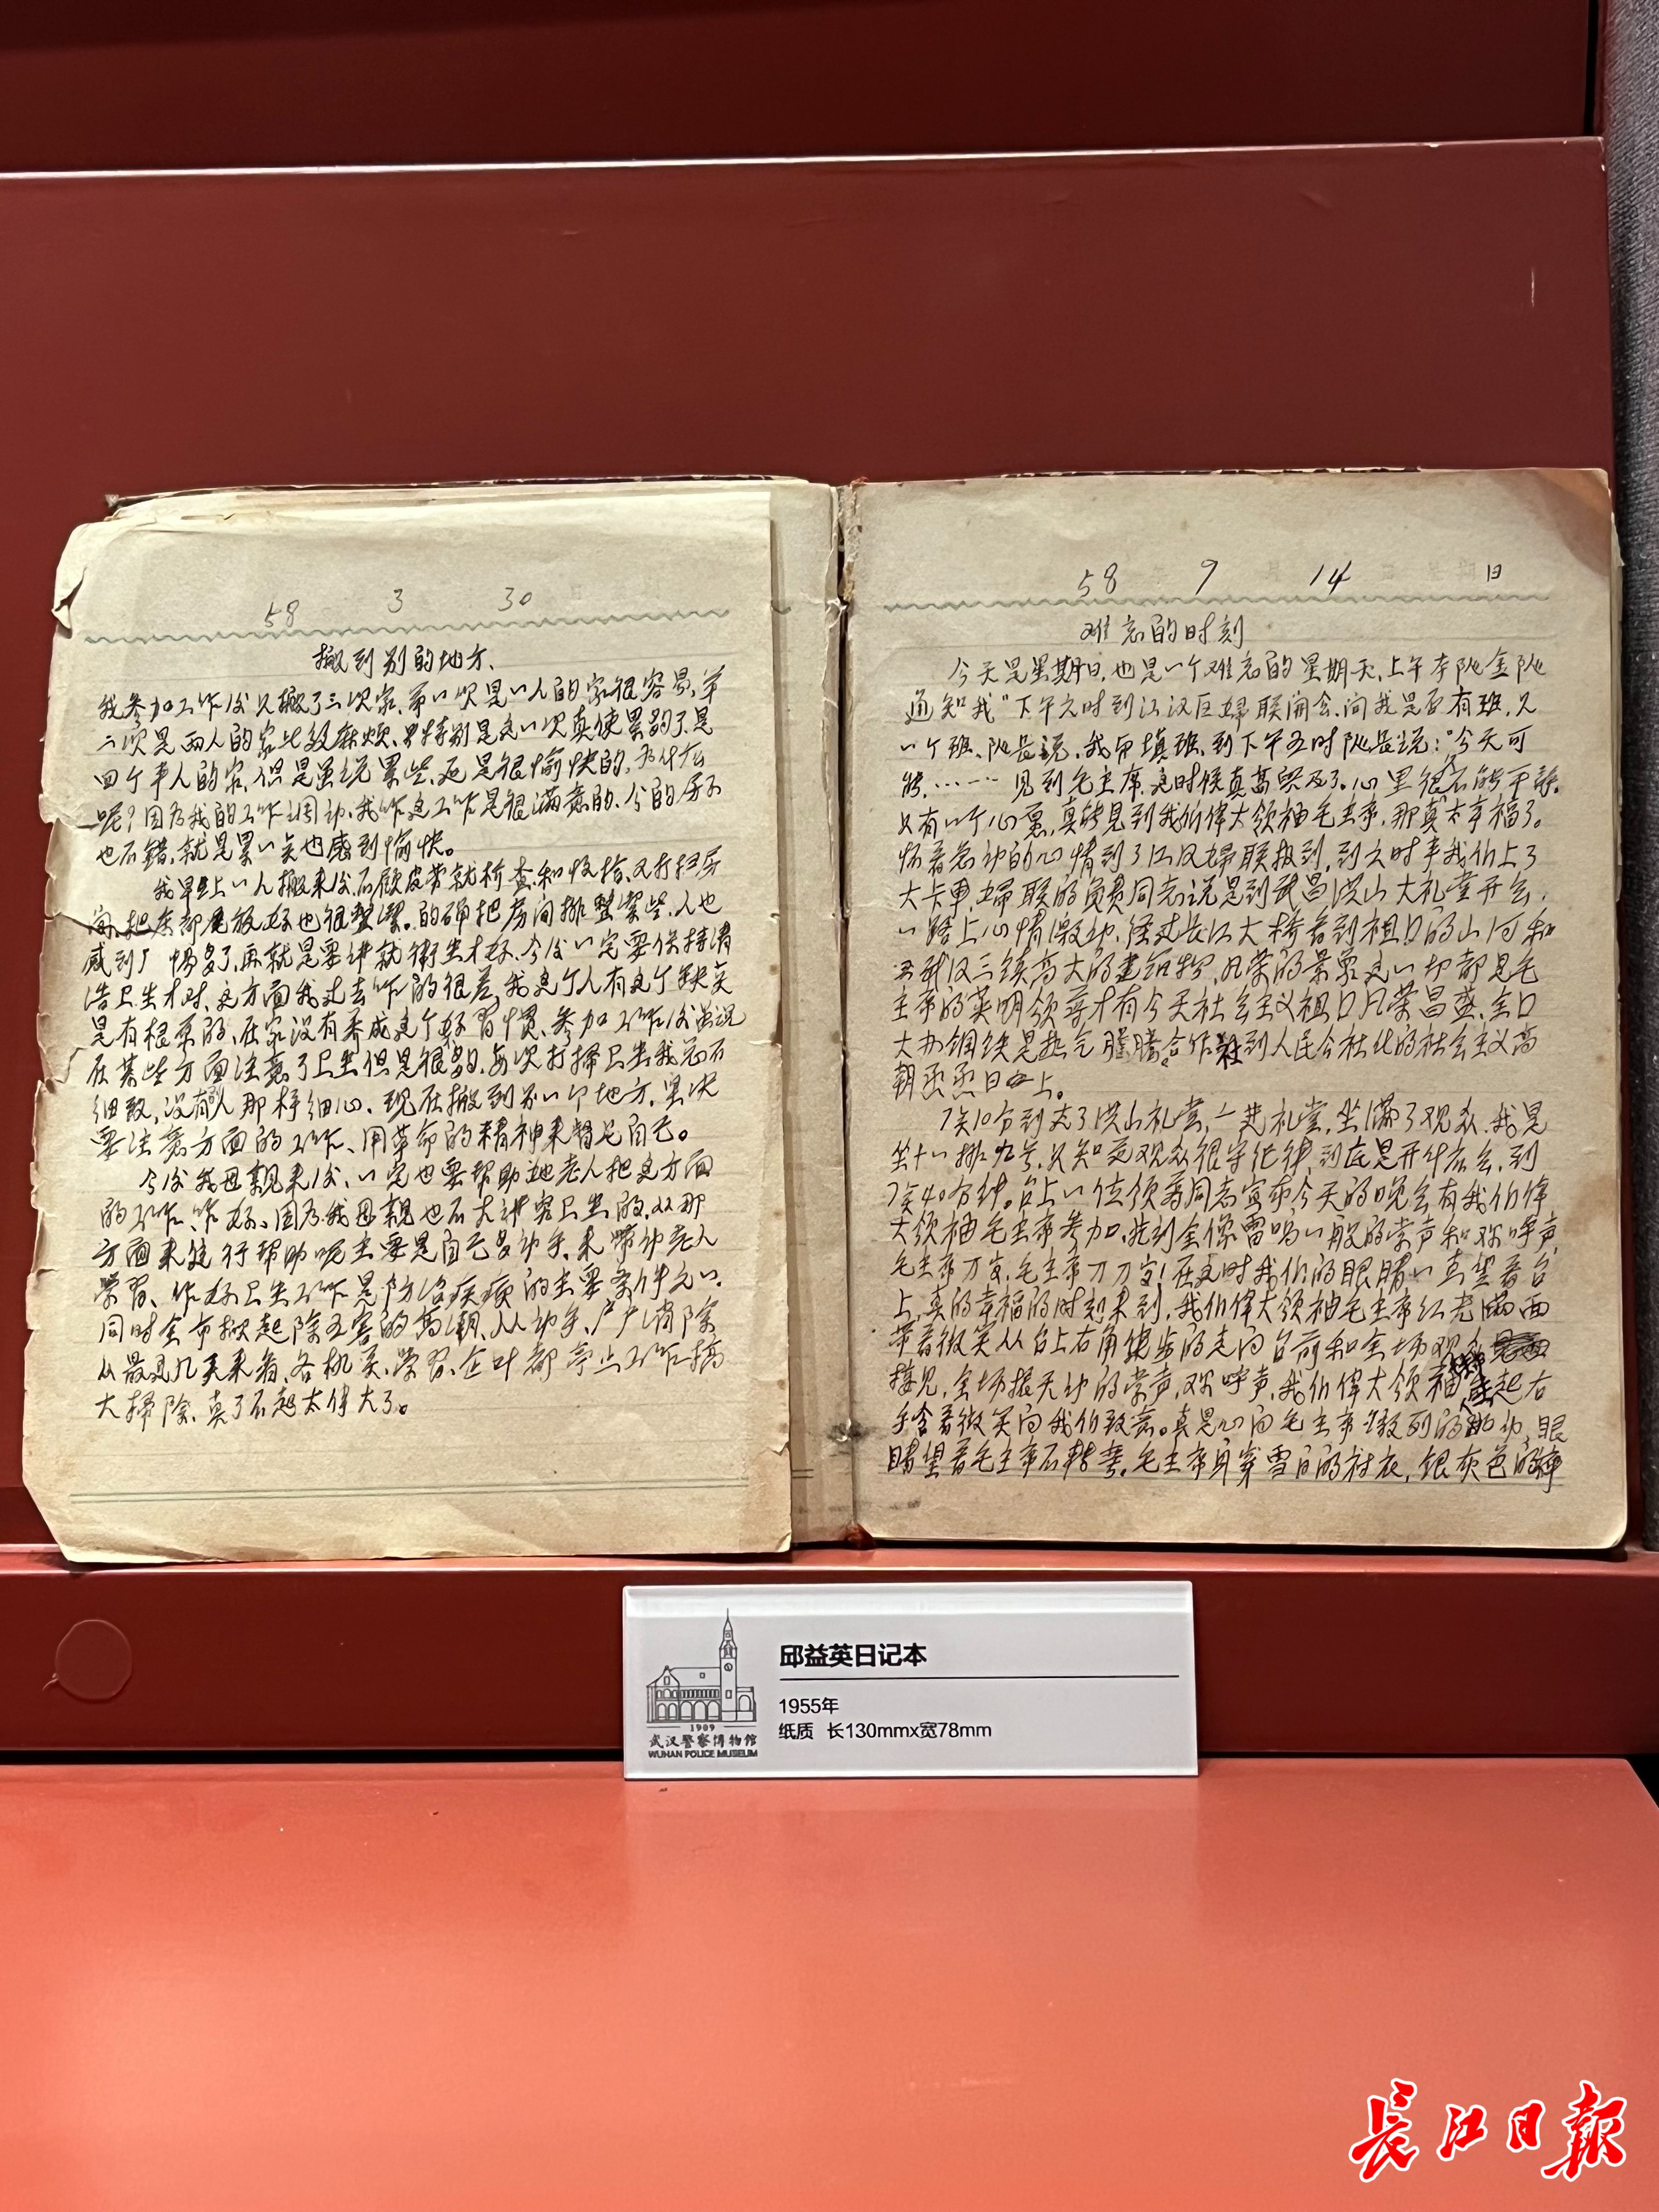 58 3 30
搬到别的地方、
我参加工作后只搬了三次家、第一次是一人的家很容易、第
二次是两人的家比较麻烦、特别是这一次真使累的了、是
四个半人的家、但是虽说累些、还是很愉快的、为什么
呢？因为我的工作调动、我作这工作是很满意的、分的房子
也不错、就是累一点也感到愉快。
我早些上一人搬来后、不顾皮劳就检查和收拾、又打扫房
间、把东都尾放好也很整洁。的确把房间排整洁些、人也
感到 多了、再就是要讲就卫生才好、今后一定要保持清
洁卫生才对、这方面我过去作的很差、我这个人有这个缺点
是有根原的、在家没有养成这个好习惯、参加工作后虽说
在某些方面注意了卫生但是很 、每次打扫卫生我总不
细致、没有别人那样细心、现在搬到另一个地方、坚决
要注意方面的工作、用革命的精神来督促自己。
今后我母亲来后、一定也要帮助她老人把这方面
的工作作好、因为我母亲也不大讲究卫生的、从那
方面来进行帮助呢主要是自己多动手、来带动老人
学习、作好卫生工作是防治疾病的主要条件之一。
同时全市掀起除五害的高潮、人人动手、户户消除
从最近几天来看、各机关、学习、企叶都停止工作搞
大扫除、真了不起太伟大了。
58 9 14 日
难忘的时刻
今天是星期日、也是一个难忘的星期天、上午李队金队
通知我"下午六时到江汉区妇联开会、问我是否有班、又
一个班、队长说、我帮填班、到下午五时队长说："今天可
能……见到毛主席、这时候真高兴及了。心里很不能平静。
只有一个心意、真能见到我们伟大领袖毛主席、那真太幸福了。
怀着急动的心情到了江汉妇联报到、到六时半我们上了
大卡车、妇联的负责同志说是到武昌洪山大礼堂开会、
一路上心情激动、径过长江大桥看到祖口的山河和
武汉三镇高大的建筑物、凡荣的景象这一切都是毛
主席的英明领导才有今天社会主义祖口凡荣昌盛、全口
大办钢铁是热气腾腾合作社到人民公社化的社会主义高
朝丞丞日上。
7点10分到达了洪山礼堂、一进礼堂、坐满了观众、我是
坐十一排九号、只知道观众很守纪律、到底是开什么会、到
7点40分钟。台上一位领导同志宣布今天的晚会有我们伟
大领袖毛主席参加、 到全像雷鸣一般的掌声和欢呼声
毛主席万岁、毛主席万万岁！在这时我们的眼睛一直望着台
上、真的幸福的时刻来到、我们伟大领袖毛主席红光满面
带着微笑从台上右角健步的走向台前和全场观众
接见、全场振天动的掌声、欢呼声、我们伟大领袖 起右
手含着微笑向我们致意。真是心向毛主席激烈的跳动、眼
睛望着毛主席不转 。毛主席身穿雪白的衬衣、银灰色的
邱益英日记本
1955年
纸质 长130mmx宽78mm
1909
武汉警察博物馆
WUHAN POLICE MUSEUM
长江日报